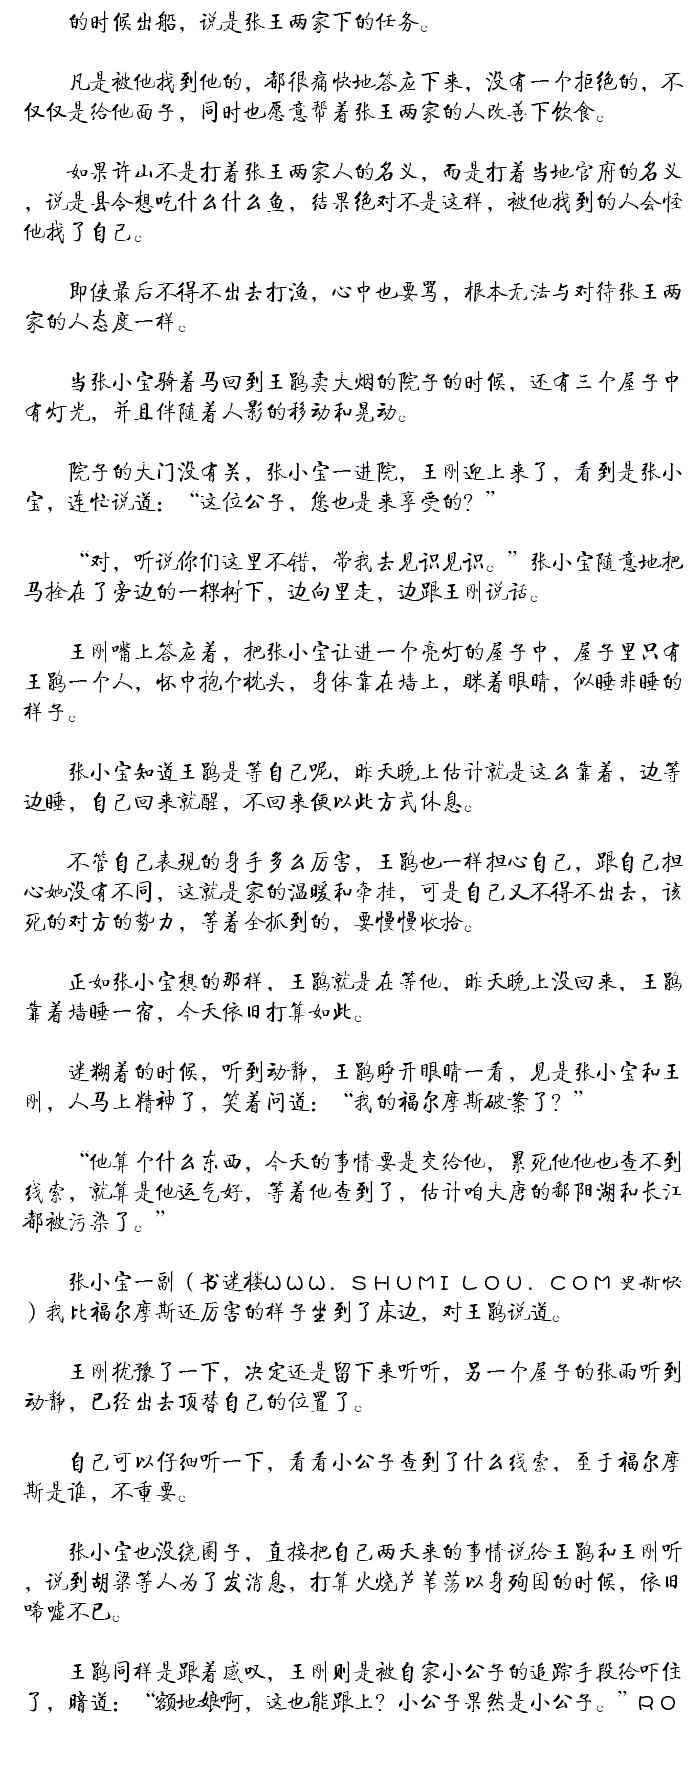 的时候出船，说是张王两家下的任务。
凡是被他找到他的，都很痛快地答应下来，没有一个拒绝的，不
仅仅是给他面子，同时也愿意帮着张王两家的人改善下饮食。
如果许山不是打着张王两家人的名义，而是打着当地官府的名义
，说是县令想吃什么什么鱼，结果绝对不是这样，被他找到的人会怪
他找了自己。
即使最后不得不出去打渔，心中也要骂，根本无法与对待张王两
家的人态度一样。
当张小宝骑着马回到王鹃卖大烟的院子的时候，还有三个屋子中
有灯光，并且伴随着人影的移动和晃动。
院子的大门没有关，张小宝一进院，王刚迎上来了，看到是张小
宝，连忙说道：“这位公子，您也是来享受的？”
“对，听说你们这里不错，带我去见识见识。”张小宝随意地把
马拴在了旁边的一棵树下，边向里走，边跟王刚说话。
王刚嘴上答应着，把张小宝让进一个亮灯的屋子中，屋子里只有
王鹃一个人，怀中抱个枕头，身体靠在墙上，眯着眼睛，似睡非睡的
样子。
张小宝知道王鹃是等自己呢，昨天晚上估计就是这么靠着，边等
边睡，自己回来就醒，不回来便以此方式休息。
不管自己表现的身手多么厉害，王鹃也一样担心自己，跟自己担
心她没有不同，这就是家的温暖和牵挂，可是自己又不得不出去，该
死的对方的势力，等着全抓到的，要慢慢收拾。
正如张小宝想的那样，王鹃就是在等他，昨天晚上没回来，王鹃
靠着墙睡一宿，今天依旧打算如此。
迷糊着的时候，听到动静，王鹃睁开眼睛一看，见是张小宝和王
刚，人马上精神了，笑着问道：“我的福尔摩斯破案了？”
“他算个什么东西，今天的事情要是交给他，累死他他也查不到
线索，就算是他运气好，等着他查到了，估计咱大唐的鄱阳湖和长江
都被污染了。”
张小宝一副（书迷楼WWW．ＳＨＵＭＩＬＯＵ．ＣＯＭ更新快
）我比福尔摩斯还厉害的样子坐到了床边，对王鹃说道。
王刚犹豫了一下，决定还是留下来听听，另一个屋子的张雨听到
动静，已经出去顶替自己的位置了。
自己可以仔细听一下，看看小公子查到了什么线索，至于福尔摩
斯是谁，不重要。
张小宝也没绕圈子，直接把自己两天来的事情说给王鹃和王刚听
，说到胡梁等人为了发消息，打算火烧芦苇荡以身殉国的时候，依旧
唏嘘不已。
王鹃同样是跟着感叹，王刚则是被自家小公子的追踪手段给吓住
了，暗道：“额地娘啊，这也能跟上？小公子果然是小公子。”ＲＯ